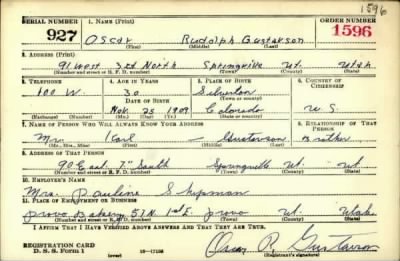 1596
SERIAL NUMBER 1. NAME (Print) ORDER NUMBER
927 Oscar Rudolph Gustavson 1596
(First) (Middle) (Last)
2. ADDRESS (Print)
91 West 3rd North Springville Ut. Utah
(Number and street or R. F. D. number) (Town) (County) (State)
3. TELEPHONE 4. AGE IN YEARS 5. PLACE OF BIRTH 6. COUNTRY OF CITIZENSHIP
100 W. 30 Silverton
DATE OF BIRTH (Town or county)
Nov. 25 1909 Colorado U.S.
(Exchange) (Number) (Mo.) (Day) (Yr.) (State or country)
7. NAME OF PERSON WHO WILL ALWAYS KNOW YOUR ADDRESS 8. RELATIONSHIP OF THAT PERSON
Mr. Karl — Gustavson Brother
(Mr., Mrs., Miss) (First) (Middle) (Last)
9. ADDRESS OF THAT PERSON
90 East 7" South Springville Ut. Ut
(Number and street or R. F. D. number) (Town) (County) (State)
10. EMPLOYER'S NAME
Mrs. Pauline Shipman
11. PLACE OF EMPLOYMENT OR BUSINESS
Provo Bakery 57 N. 1st E. Provo Ut Utah
(Number and street or R. F. D. number) (Town) (County) (State)
I AFFIRM THAT I HAVE VERIFIED ABOVE ANSWERS AND THAT THEY ARE TRUE.
REGISTRATION CARD
D. S. S. Form 1 (over) Oscar R. Gustavson
(Registrant's signature)